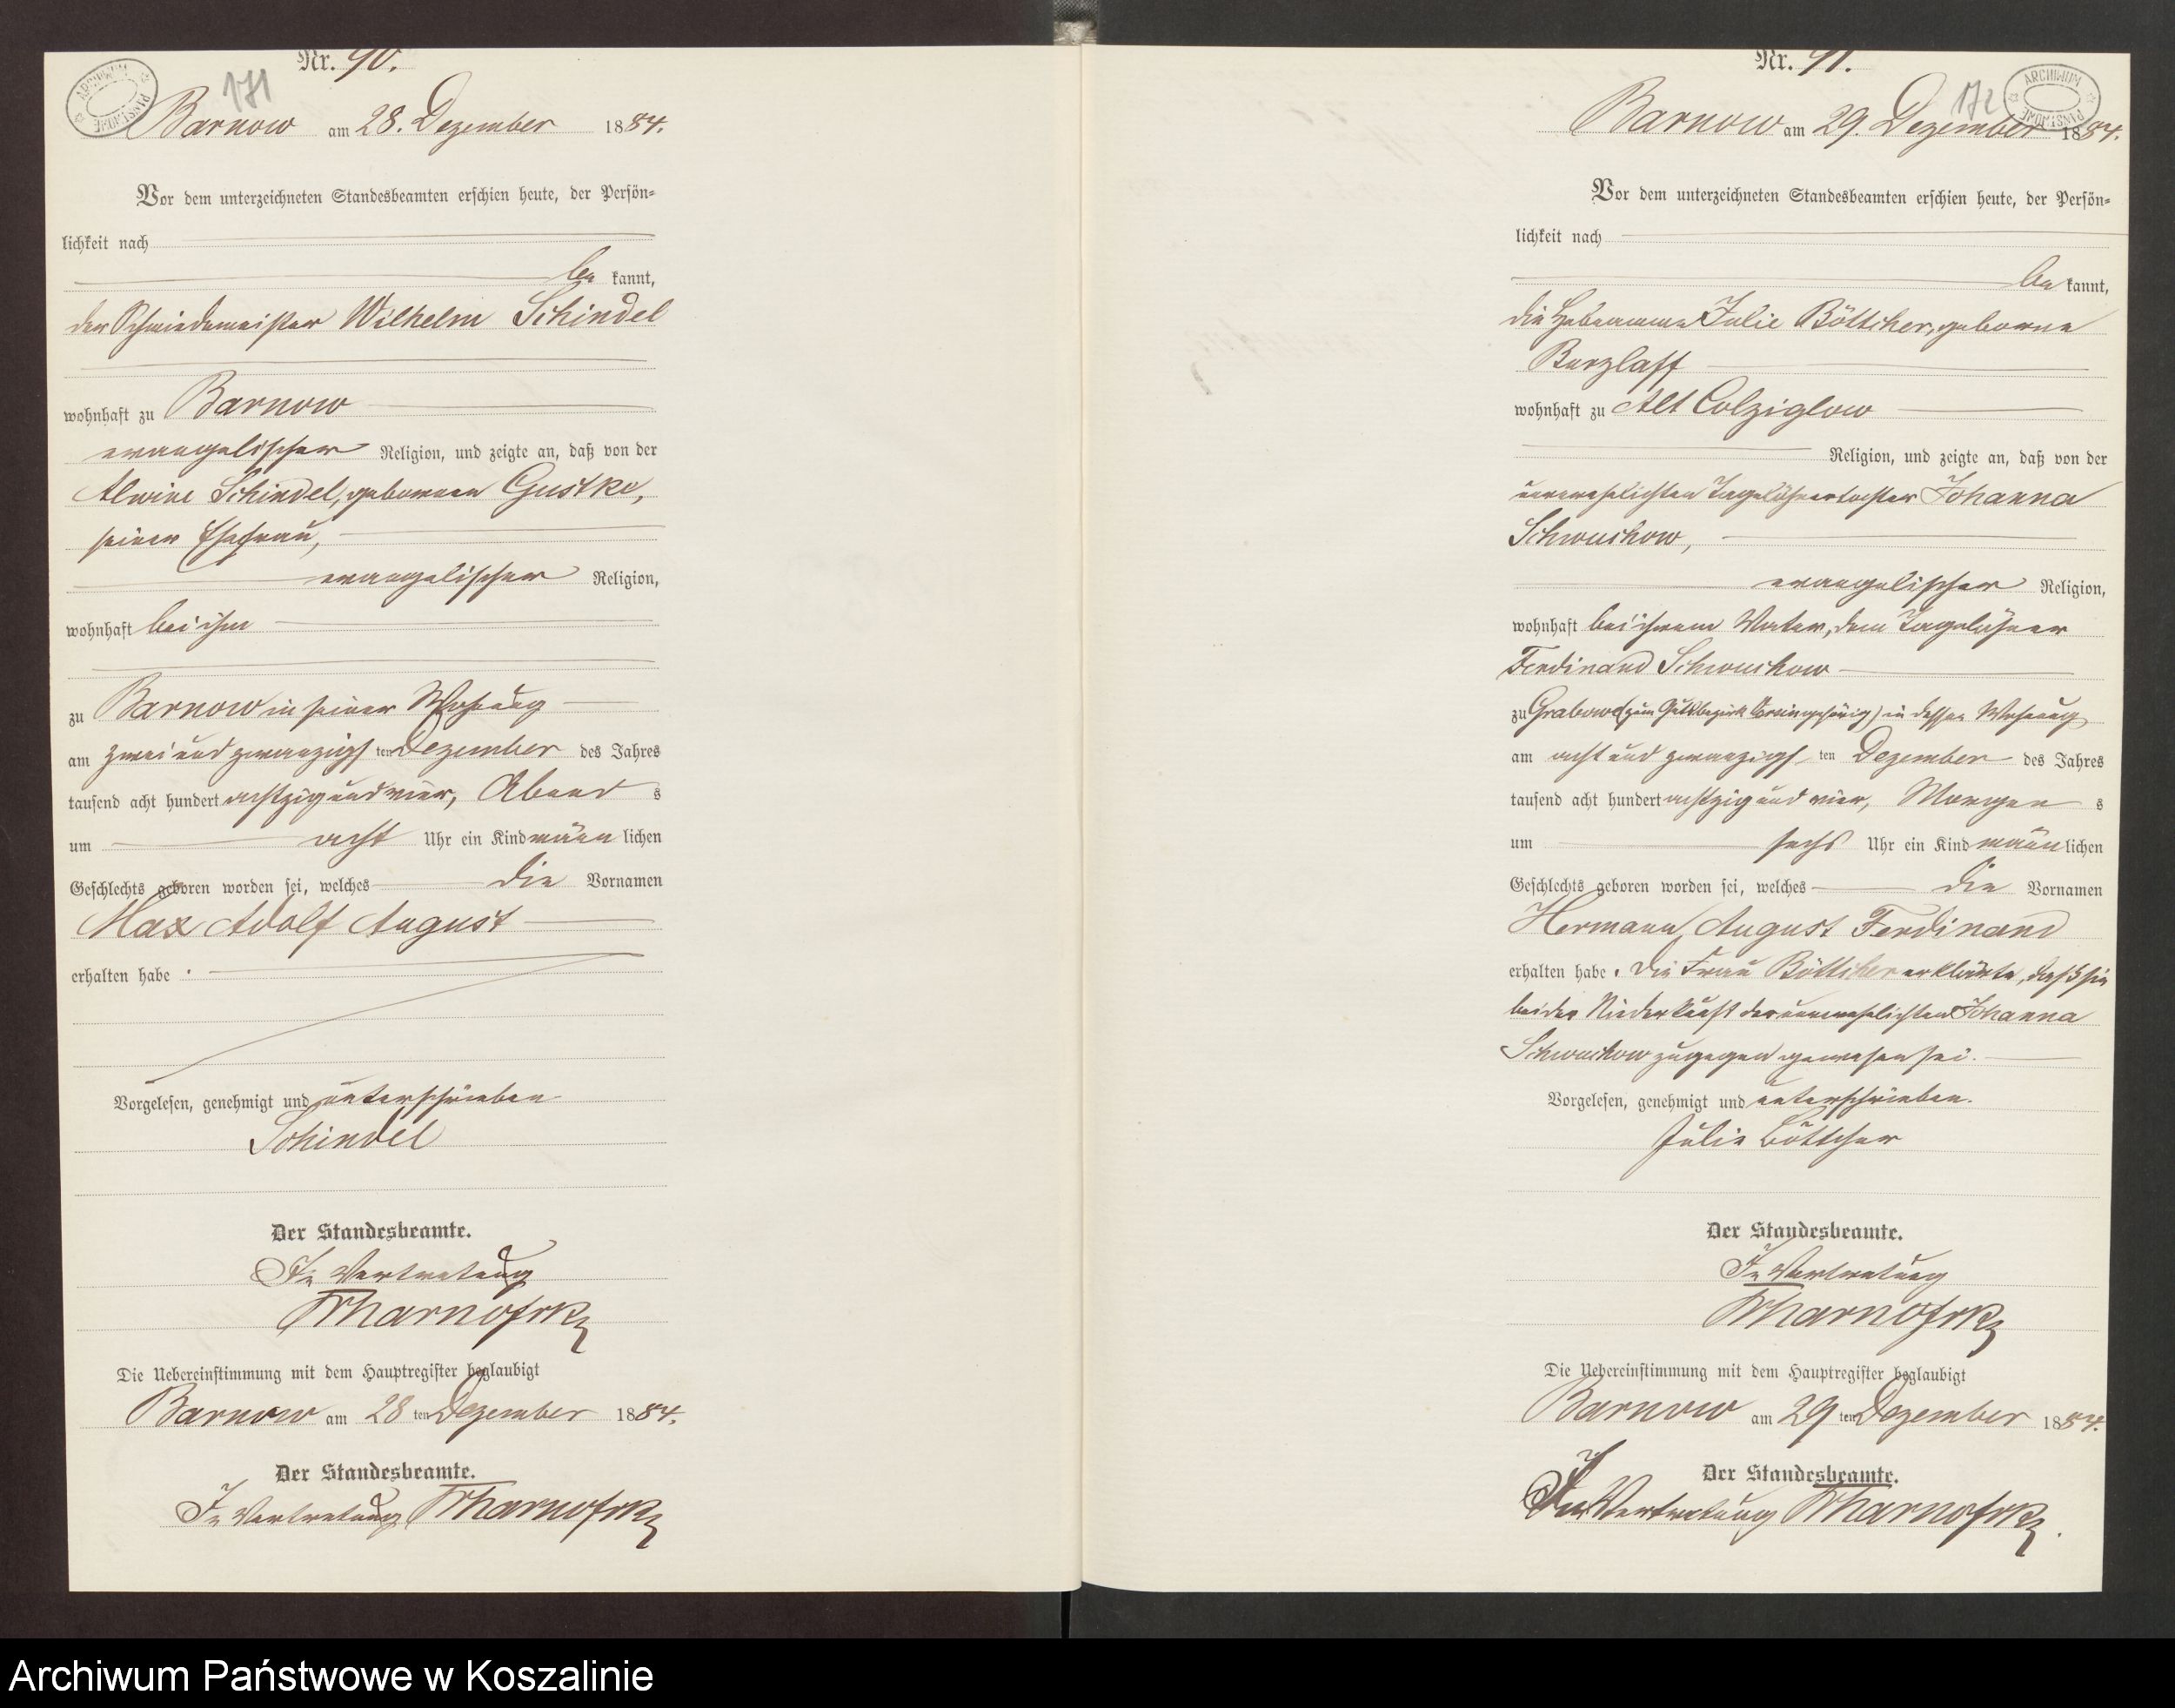 Nr. 90.
171
ARCHIWUM PAŃSTWOWE
Barnow am 28. Dezember 1884.
Vor dem unterzeichneten Standesbeamten erschien heute, der Persön=
lichkeit nach
be kannt,
der Schmiedemeister Wilhelm Schindel
wohnhaft zu Barnow
evangelischer Religion, und zeigte an, daß von der
Alwine Schindel, geborenen Gustke,
seiner Ehefrau,
evangelischer Religion,
wohnhaft bei ihm
zu Barnow in seiner Wohnung
am zwei und zwanzigs ten Dezember des Jahres
tausend acht hundert achtzig und vier, Abend s
um acht Uhr ein Kind männ lichen
Geschlechts geboren worden sei, welches die Vornamen
Max Adolf August
erhalten habe.
Vorgelesen, genehmigt und unterschrieben
Schindel
Der Standesbeamte.
In Vertretung
Die Uebereinstimmung mit dem Hauptregister beglaubigt
Barnow am 28 ten Dezember 1884.
Der Standesbeamte.
In Vertretung
Nr. 91.
172
ARCHIWUM PAŃSTWOWE
Barnow am 29. Dezember 1884.
Vor dem unterzeichneten Standesbeamten erschien heute, der Persön=
lichkeit nach
be kannt,
die Hebeamme Julie Böttcher, geborne
Burzlaff
wohnhaft zu Alt Colziglow
Religion, und zeigte an, daß von der
unverehelichten Tagelöhnertochter Johanna
Schwuchow,
evangelischer Religion,
wohnhaft bei ihrem Vater, dem Tagelöhner
Ferdinand Schwuchow
zu Grabow (zum Gutsbezirk gehörig) in dessen Wohnung
am acht und zwanzigs ten Dezember des Jahres
tausend acht hundert achtzig und vier, Morgen s
um sechs Uhr ein Kind männ lichen
Geschlechts geboren worden sei, welches die Vornamen
Hermann August Ferdinand
erhalten habe. Die Frau Böttcher erklärte, daß sie
bei der Niederkunft der unverehelichten Johanna
Schwuchow zugegen gewesen sei.
Vorgelesen, genehmigt und unterschrieben.
Julie Böttcher
Der Standesbeamte.
In Vertretung
Die Uebereinstimmung mit dem Hauptregister beglaubigt
Barnow am 29 ten Dezember 1884.
Der Standesbeamte.
In Vertretung
Archiwum Państwowe w Koszalinie